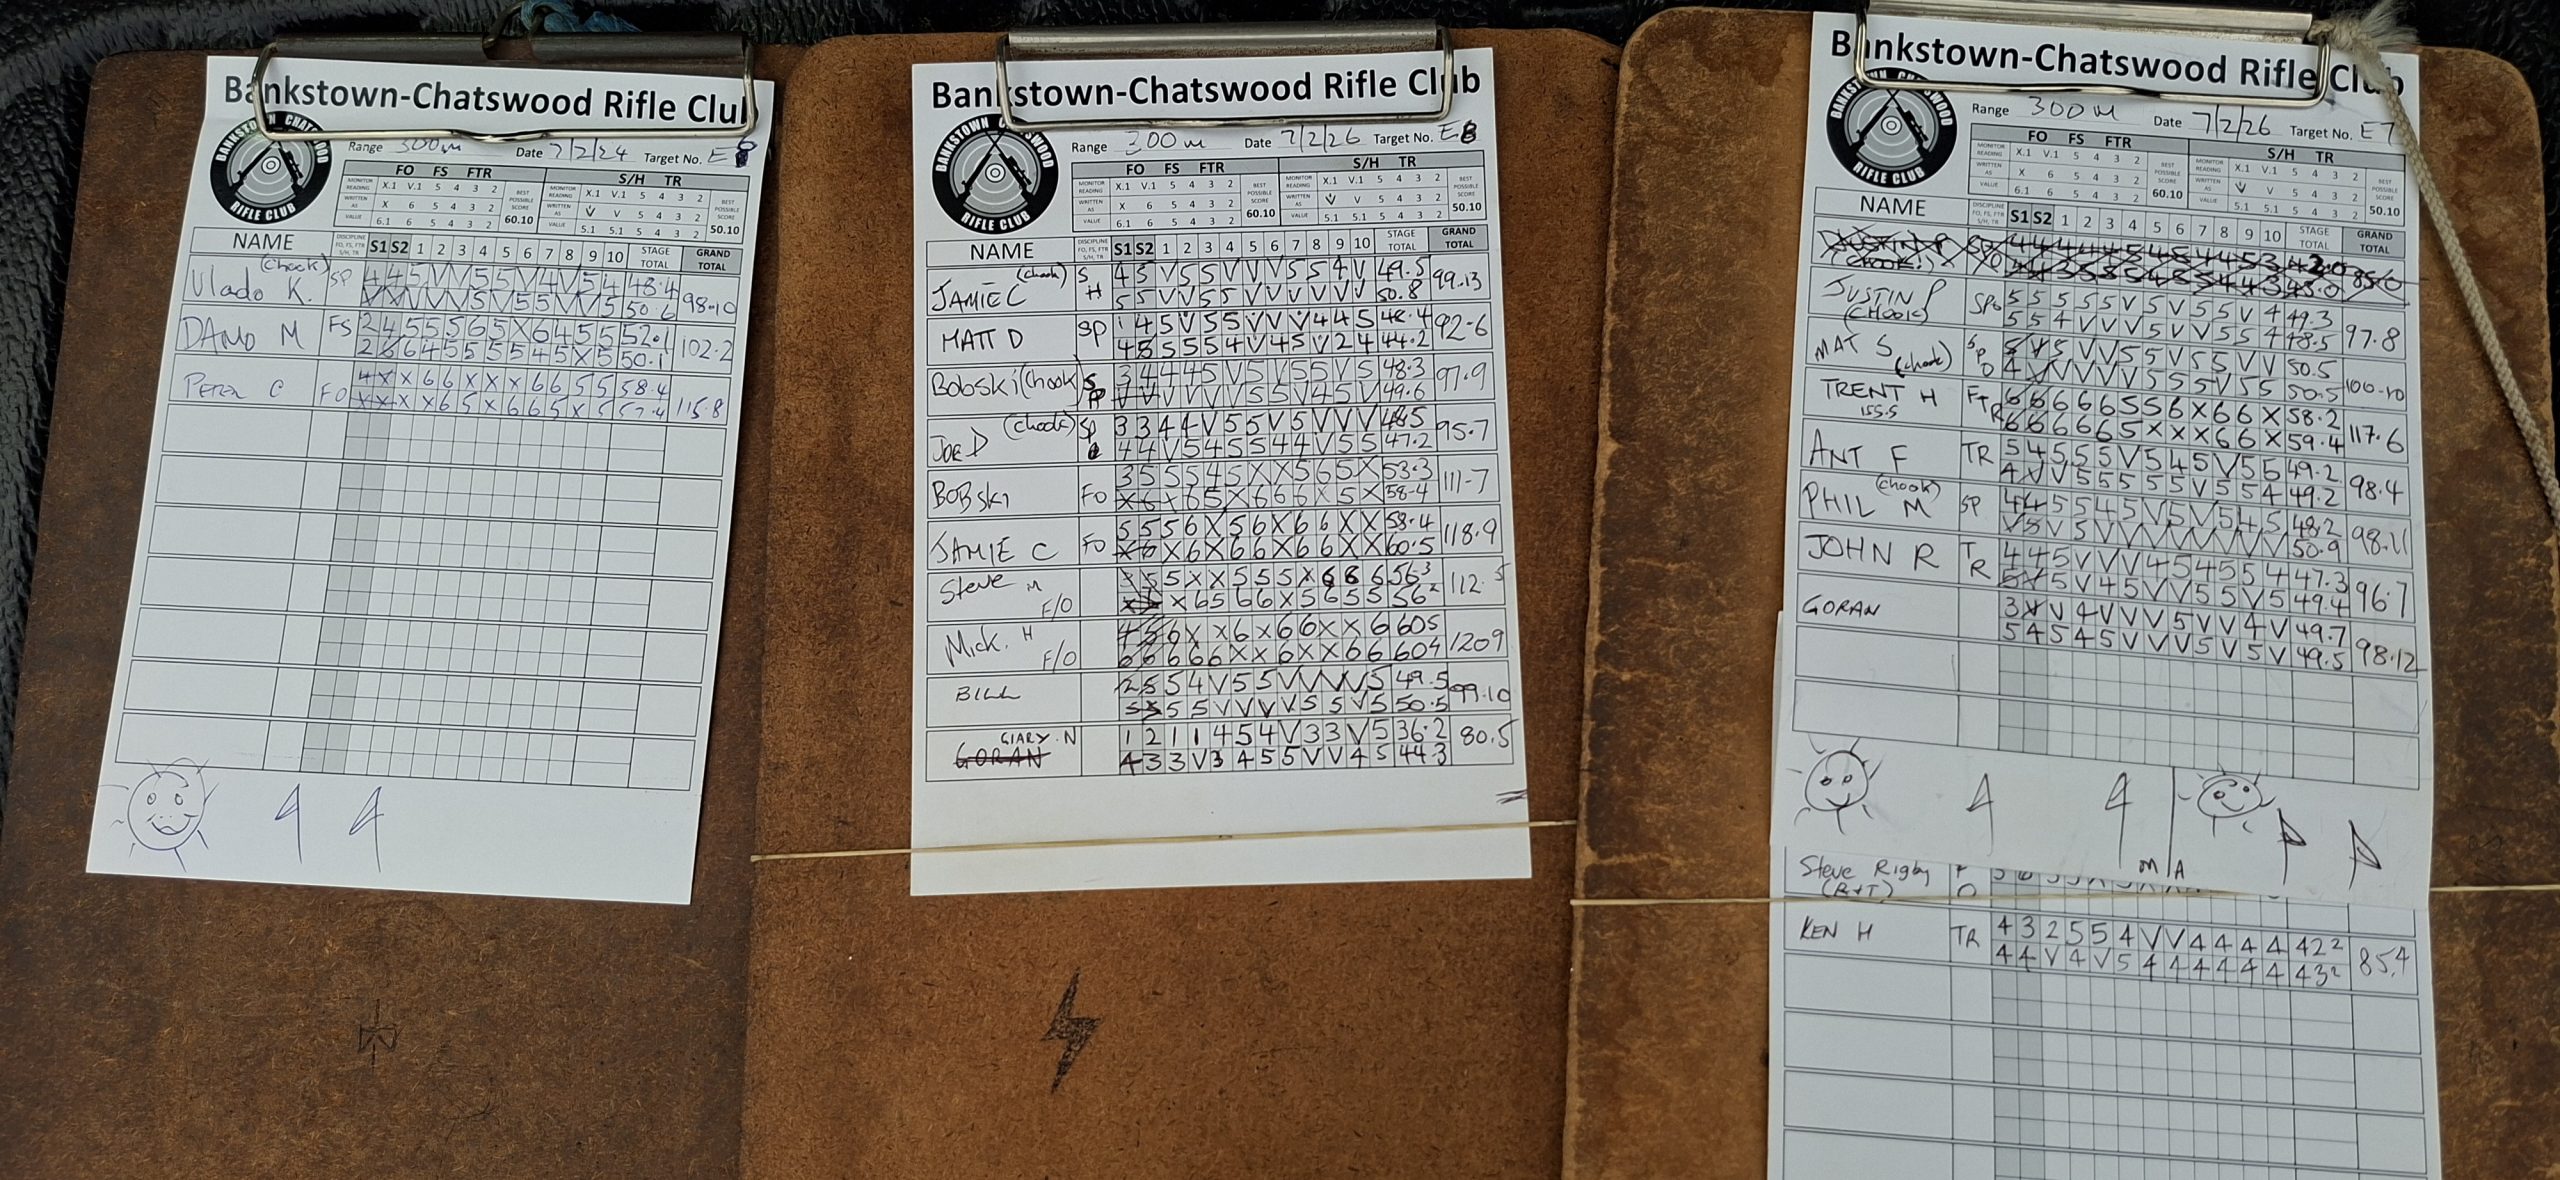 Bankstown-Chatswood Rifle Club
BANKSTOWN CHATSWOOD
RIFLE CLUB
Range 300m Date 7/2/24 Target No.
FO FS FTR S/H TR
MONITOR READING X.1 V.1 5 4 3 2 BEST POSSIBLE SCORE MONITOR READING X.1 V.1 5 4 3 2 BEST POSSIBLE SCORE
WRITTEN AS X 6 5 4 3 2 60.10 WRITTEN AS V V 5 4 3 2 50.10
VALUE 6.1 6 5 4 3 2 VALUE 5.1 5.1 5 4 3 2
NAME DISCIPLINE FO, FS, FTR S/H, TR S1 S2 1 2 3 4 5 6 7 8 9 10 STAGE TOTAL GRAND TOTAL
Vlado K. (Chook) SP 4 4 5 V V 5 5 V 4 V 5 4 48.4 98.10
V V V V V 5 V 5 5 V V 5 50.6
DAMO M FS 2 4 5 5 5 6 5 X 6 4 5 5 52.1 102.2
2 6 6 4 5 5 5 5 4 5 X 5 50.1
PETER C FO 4 X X 6 6 X X X 6 6 5 5 58.4 115.8
X X X X 6 5 X 6 6 5 X 5 57.4
Bankstown-Chatswood Rifle Club
BANKSTOWN CHATSWOOD
RIFLE CLUB
Range 300m Date 7/2/26 Target No. E8
FO FS FTR S/H TR
MONITOR READING X.1 V.1 5 4 3 2 BEST POSSIBLE SCORE MONITOR READING X.1 V.1 5 4 3 2 BEST POSSIBLE SCORE
WRITTEN AS X 6 5 4 3 2 60.10 WRITTEN AS V V 5 4 3 2 50.10
VALUE 6.1 6 5 4 3 2 VALUE 5.1 5.1 5 4 3 2
NAME DISCIPLINE FO, FS, FTR S/H, TR S1 S2 1 2 3 4 5 6 7 8 9 10 STAGE TOTAL GRAND TOTAL
JAMIE C (chook) S H 4 5 V 5 5 V V V 5 5 4 V 49.5 99.13
5 5 V V 5 5 V V V V V V 50.8
MATT D SP 1 4 5 V 5 5 V V V 4 4 5 48.4 92-6
4 5 5 5 5 4 V 4 5 V 2 4 44.2
Bobski (Chook) SP 3 4 4 4 4 5 V 5 V 5 5 V 5 48.3 97.9
V V V V V V 5 5 V 4 5 V 49.6
JOE D (chook) SP 3 3 4 4 V 5 5 V 5 V V V 48.5 95.7
4 4 V 5 4 5 5 4 4 V 5 5 47.2
BOBSKI FO 3 5 5 5 4 5 X X 5 6 5 X 53.3 111-7
X 6 X 6 5 X 6 6 6 X 5 X 58-4
JAMIE C FO 5 5 5 6 X 5 6 X 6 6 X X 58.4 118.9
X 6 X 6 X 6 6 X 6 6 X X 60.5
Steve M F/O 3 5 5 X X 5 5 5 X 6 6 6 56.3 112.5
X X 6 5 6 6 X 5 6 5 5 56.2
Mick. H F/O 4 5 6 X X 6 X 6 6 X X 6 605 1209
6 6 6 6 6 X X 6 X X 6 6 604
BILL 2 5 5 4 V 5 5 V V V V 5 49.5 99.10
5 5 5 5 V V V V 5 5 V 5 50.5
GARY. N 1 2 1 1 4 5 4 V 3 3 V 5 36.2 80.5
GORAN 4 3 3 V 3 4 5 5 V V 4 5 44.3
Bankstown-Chatswood Rifle Club
BANKSTOWN CHATSWOOD
RIFLE CLUB
Range 300m Date 7/2/26 Target No. E7
FO FS FTR S/H TR
MONITOR READING X.1 V.1 5 4 3 2 BEST POSSIBLE SCORE MONITOR READING X.1 V.1 5 4 3 2 BEST POSSIBLE SCORE
WRITTEN AS X 6 5 4 3 2 60.10 WRITTEN AS V V 5 4 3 2 50.10
VALUE 6.1 6 5 4 3 2 VALUE 5.1 5.1 5 4 3 2
NAME DISCIPLINE FO, FS, FTR S/H, TR S1 S2 1 2 3 4 5 6 7 8 9 10 STAGE TOTAL GRAND TOTAL
JUSTIN P 85.0
(CHOOK) 43.0
JUSTIN P SPO 5 5 5 5 5 V 5 V 5 5 V 4 49.3 97.8
(CHOOK) 5 5 4 V V V 5 V V 5 5 4 48.5
MAT S (chook) SPO 5 V 5 V V 5 5 V 5 5 V V 50.5 100.10
4 V V V V V 5 5 5 V 5 5 50.5
TRENT H FTR 6 6 6 6 6 5 5 6 X 6 6 X 58.2 117.6
155.5 6 6 6 6 6 5 X X X 6 6 X 59.4
ANT F TR 5 4 5 5 5 V 5 4 5 V 5 5 49.2 98.4
4 V V 5 5 5 5 5 V 5 5 4 49.2
PHIL M (chook) SP 4 4 5 5 4 5 V 5 V 5 4 5 48.2 98.11
V 5 V 5 V V V V V V V V 50.9
JOHN R TR 4 4 5 V V V 4 5 4 5 5 4 47.3 96.7
5 V 5 V 4 5 V V 5 5 V 5 49.4
GORAN 3 V V 4 V V V 5 V V 4 V 49.7 98.12
5 4 5 4 5 V V V 5 V 5 V 49.5
4 4 P P
M A
Steve Rigby F
(R+T) O
KEN H TR 4 3 2 5 5 4 V V 4 4 4 4 42 2 85.4
4 4 V 4 V 5 4 4 4 4 4 4 43 2